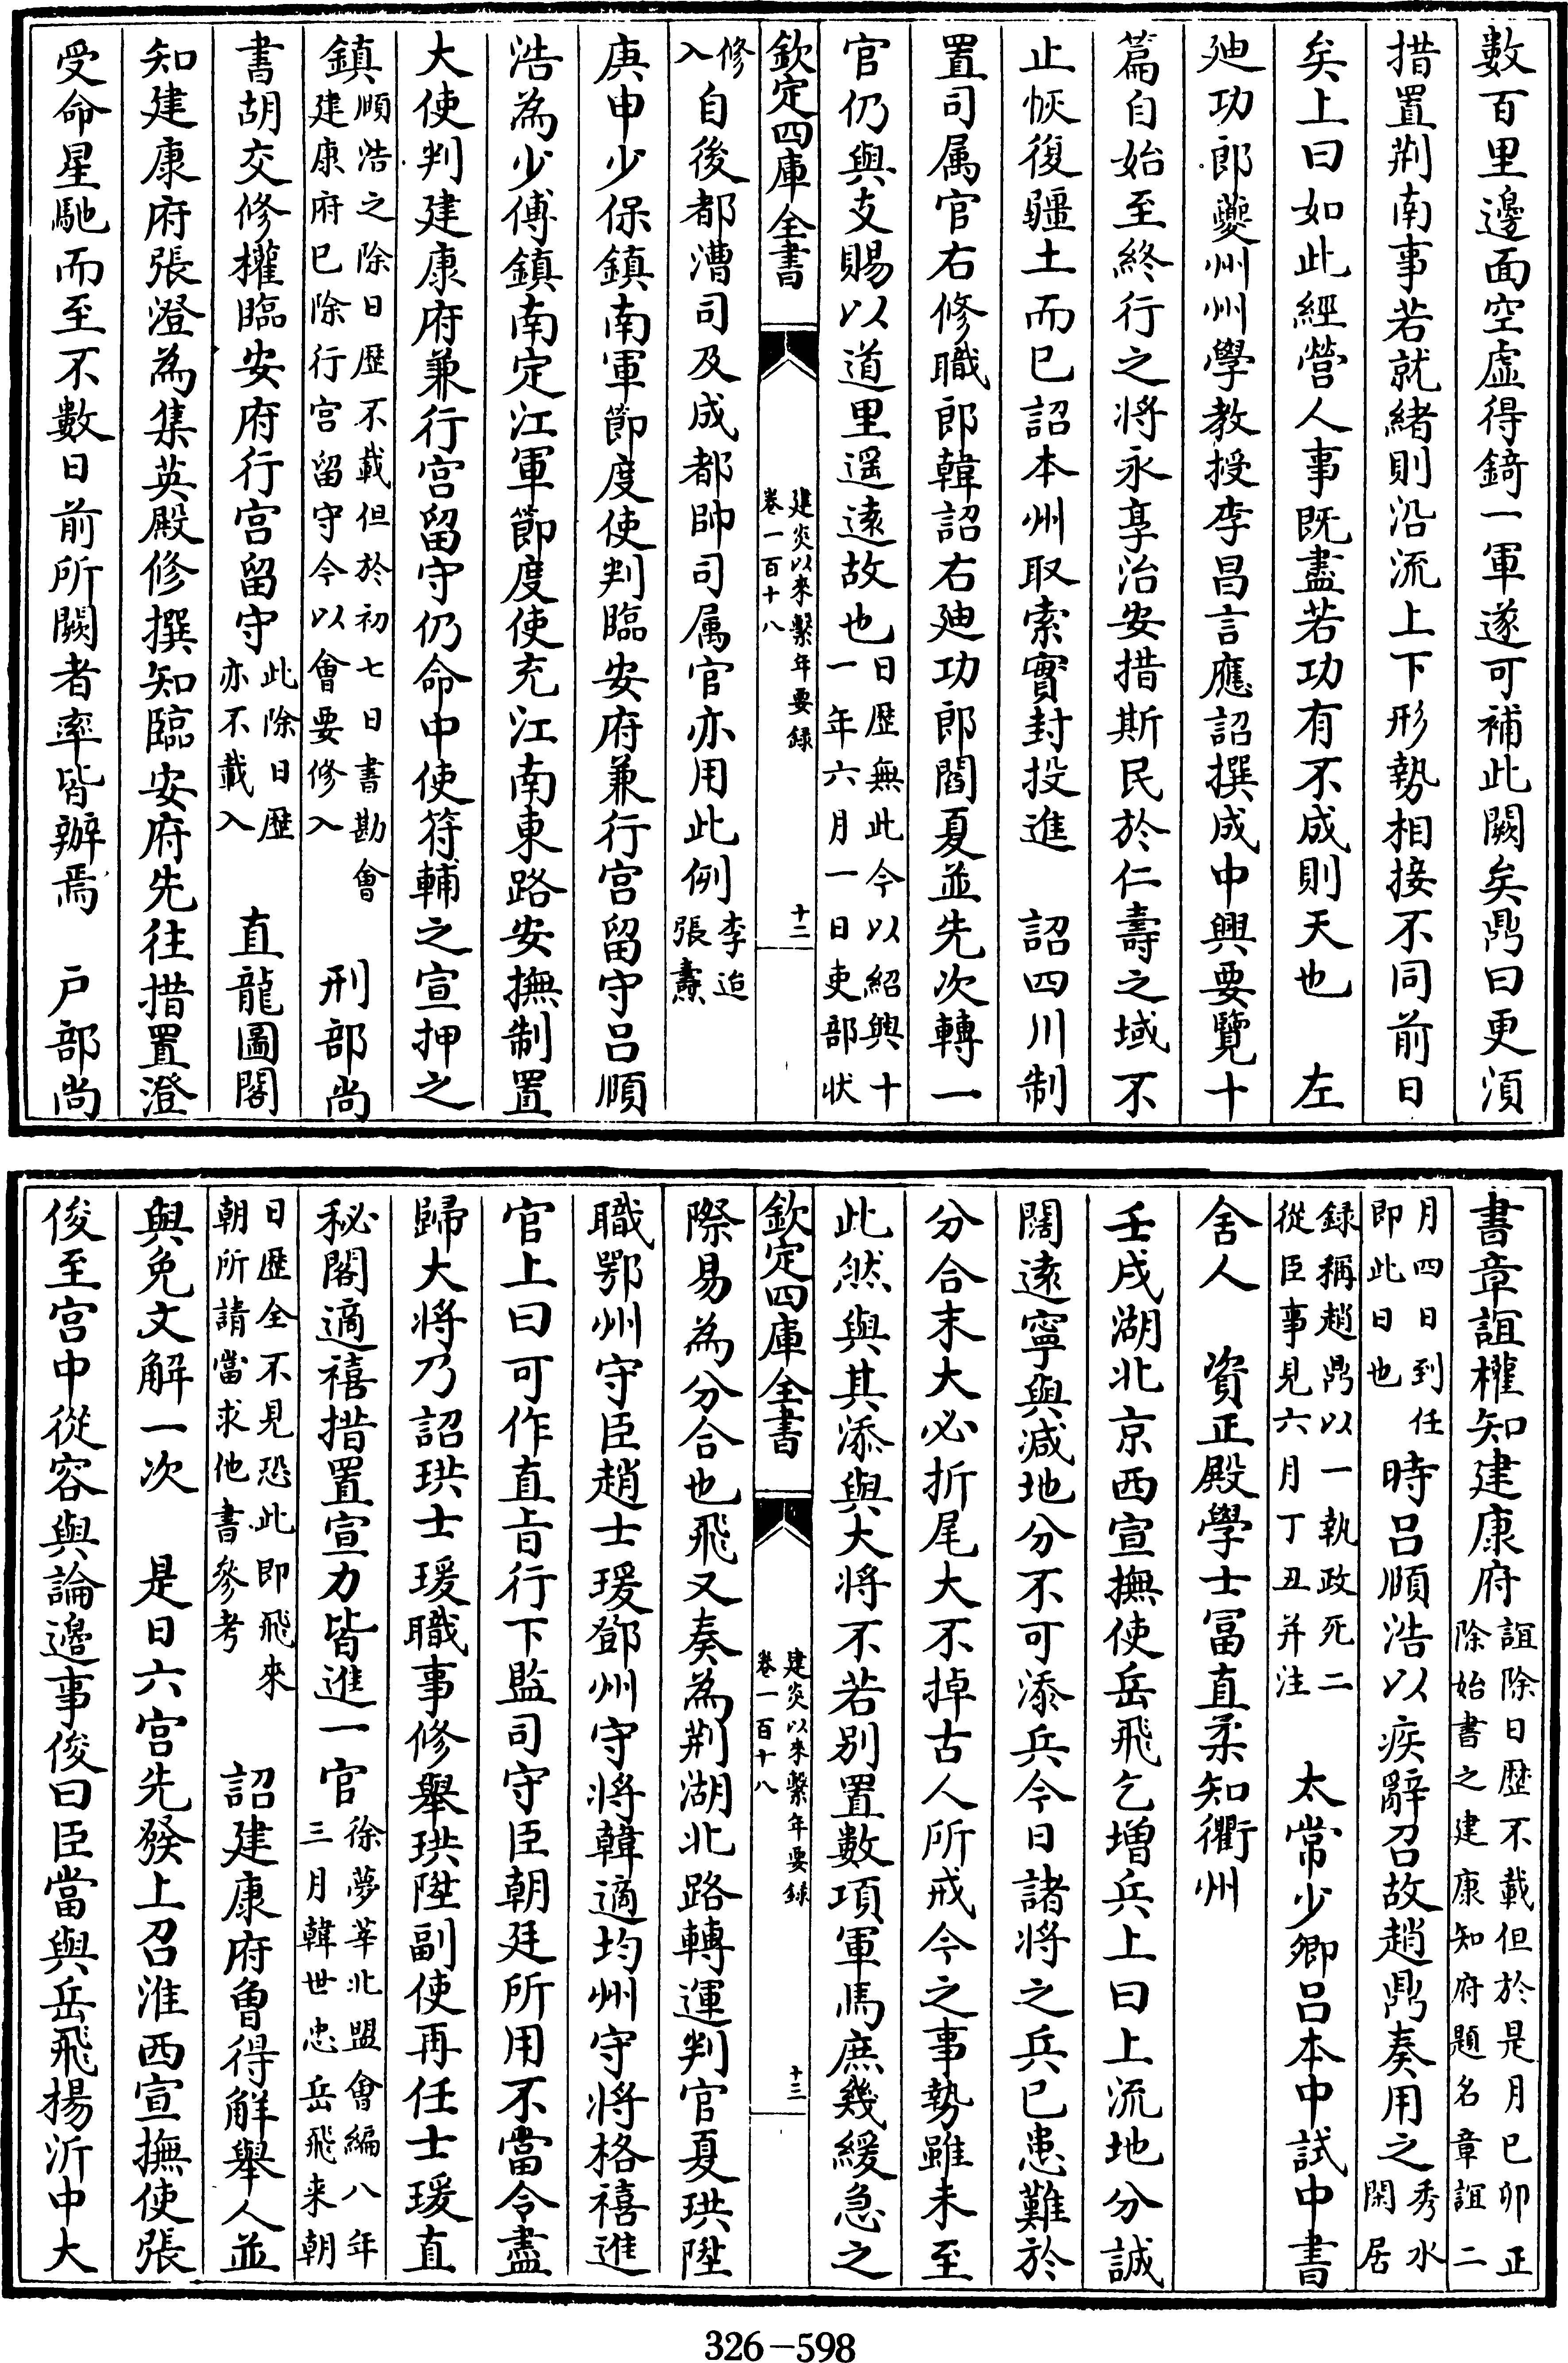 數百里邊面空虛得錡一軍遂可補此闕矣鼎曰更湏
措置荆南事若就緒則沿流上下形勢相接不同前日
矣上曰如此經營人事既盡若功有不成則天也　左
廸功郎夔州州學教授李昌言應詔撰成中興要覽十
篇自始至終行之將永享治安措斯民於仁壽之域不
止恢復疆土而已詔本州取索實封投進　詔四川制
置司属官右修職郎韓詔右廸功郎閻夏並先次轉一
官仍與支賜以道里遥遠故也日歴無此今以紹興十
一年六月一日吏部狀
欽定四庫全書
建炎以來繫年要録
卷一百十八
十二
修
入自後都漕司及成都帥司属官亦用此例李迨
張燾
庚申少保鎮南軍節度使判臨安府兼行宫留守吕順
浩為少傅鎮南定江軍節度使充江南東路安撫制置
大使判建康府兼行宫留守仍命中使符輔之宣押之
鎮順浩之除日歴不載但於初七日書勘會
建康府已除行宫留守今以會要修入　刑部尚
書胡交修權臨安府行宫留守此除日歴
亦不載入　直龍圖閣
知建康府張澄為集英殿修撰知臨安府先往措置澄
受命星馳而至不數日前所闕者率皆辦焉　户部尚
書章誼權知建康府誼除日歴不載但於是月已卯正
除始書之建康知府題名章誼二
月四日到任
即此日也時吕順浩以疾辭召故趙鼎奏用之秀水
閑居
録稱趙鼎以一執政死二
從臣事見六月丁丑并注　太常少卿吕本中試中書
舍人　資正殿學士冨直柔知衢州
壬戌湖北京西宣撫使岳飛乞增兵上曰上流地分誠
闊遠寧與减地分不可添兵今日諸將之兵已患難於
分合末大必折尾大不掉古人所戒今之事勢雖未至
此然與其添與大將不若别置數項軍馬庶幾緩急之
欽定四庫全書
建炎以來繫年要録
卷一百十八
十三
際易為分合也飛又奏為荆湖北路轉運判官夏珙陞
職鄂州守臣趙士瑗鄧州守將韓適均州守將格禧進
官上曰可作直旨行下監司守臣朝廷所用不當令盡
歸大將乃詔珙士瑗職事修舉珙陞副使再任士瑗直
秘閣適禧措置宣力皆進一官徐夢莘北盟會編八年
三月韓世忠岳飛來朝
日歴全不見恐此即飛來
朝所請當求他書參考　詔建康府曾得解舉人並
與免文解一次　是日六宫先發上召淮西宣撫使張
俊至宫中從容與論邊事俊曰臣當與岳飛楊沂中大
326-598